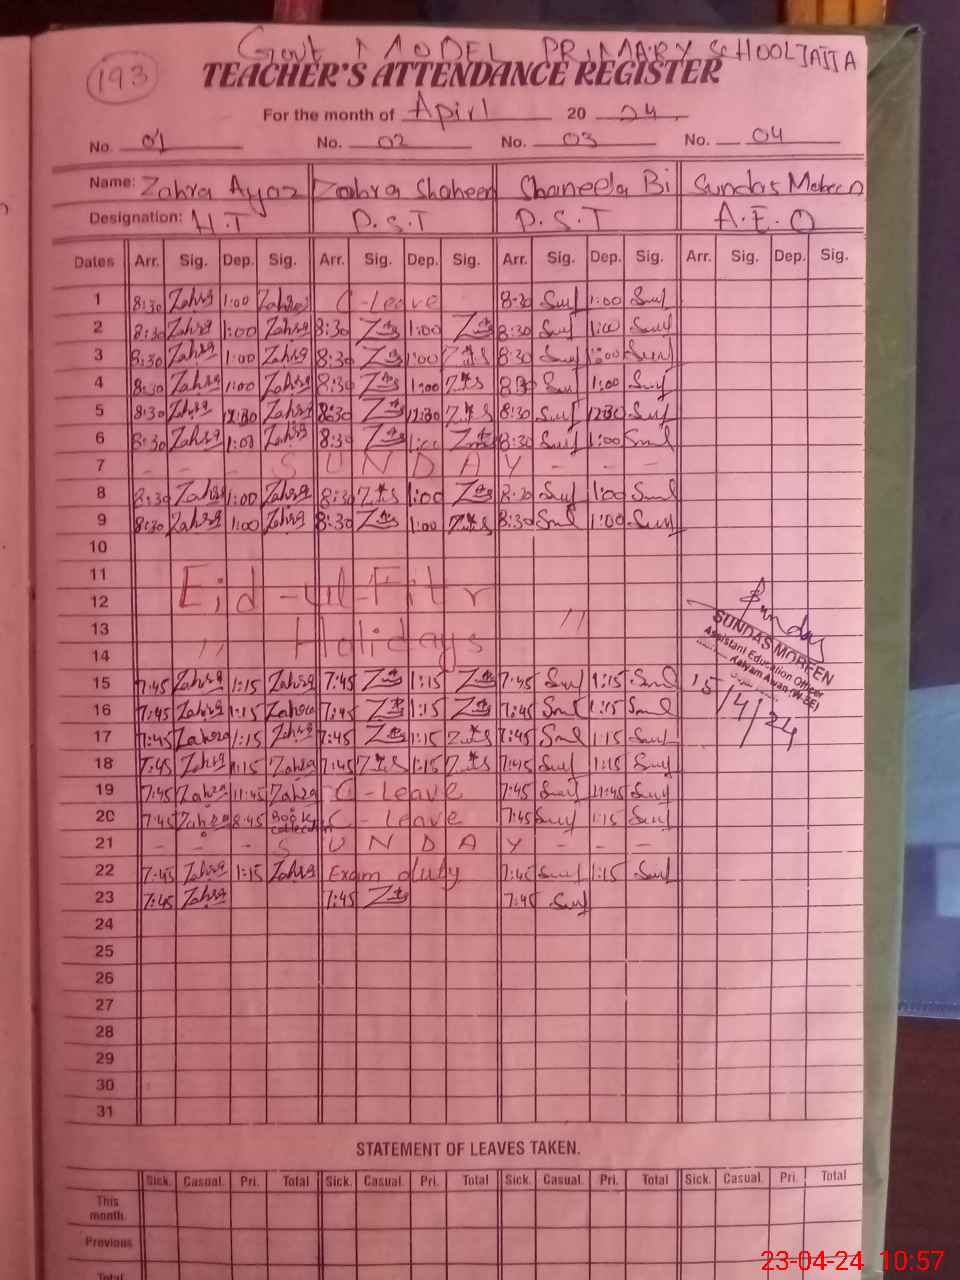 Govt MODEL PRIMARY SCHOOL JAJJA
193
TEACHER'S ATTENDANCE REGISTER
For the month of Apirl 20 24.
No. 01 No. 02 No. 03 No. 04
Name: Zahra Ayaz Zahra Shaheen Shaneela Bi Sundas Moreen
Designation: H.T P.S.T P.S.T A.E.O
Dates Arr. Sig. Dep. Sig. Arr. Sig. Dep. Sig. Arr. Sig. Dep. Sig. Arr. Sig. Dep. Sig.
1 8:30 Zahra 1:00 Zahra C-leave 8:30 1:00
2 8:30 Zahra 1:00 Zahra 8:30 1:00 8:30 1:00
3 8:30 Zahra 1:00 Zahra 8:30 1:00 8:30 1:00
4 8:30 Zahra 1:00 Zahra 8:30 1:00 8:30 1:00
5 8:30 Zahra 12:30 Zahra 8:30 12:30 8:30 12:30
6 8:30 Zahra 1:00 Zahra 8:30 1:00 8:30 1:00
7 - - - S U N D A Y - - -
8 8:30 Zahra 1:00 Zahra 8:30 1:00 8:30 1:00
9 8:30 Zahra 1:00 Zahra 8:30 1:00 8:30 1:00
10
11
12 Eid-ul-Fitr
13 " Holidays "
14
SUNDAS MOREEN
Assistant Education Officer
Kalyam Awan (W-EE)
15/4/24
15 7:45 Zahra 1:15 Zahra 7:45 1:15 7:45 1:15
16 7:45 Zahra 1:15 Zahra 7:45 1:15 7:45 1:15
17 7:45 Zahra 1:15 Zahra 7:45 1:15 7:45 1:15
18 7:45 Zahra 1:15 Zahra 7:45 1:15 7:45 1:15
19 7:45 Zahra 11:45 Zahra C-leave 7:45 11:45
20 7:45 Zahra 8:45 Book collection C-leave 7:45 1:15
21 - - - S U N D A Y - - -
22 7:45 Zahra 1:15 Zahra Exam duty 7:45 1:15
23 7:45 Zahra 7:45 7:45
24
25
26
27
28
29
30
31
STATEMENT OF LEAVES TAKEN.
Sick. Casual. Pri. Total Sick. Casual. Pri. Total Sick. Casual. Pri. Total Sick. Casual. Pri. Total
This
month.
Previous
Total
23-04-24 10:57